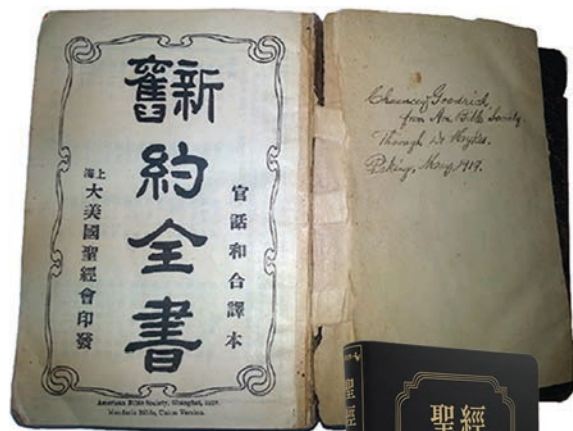 新舊
約
全
書
官話和合譯本
上海
大美國聖經會印發
American Bible Society, Shanghai, 1919.
Mandarin Bible, Union Version.
Chauncey Goodrich,
from Am. Bible Society.
Through Dr Hykes.
Peking, May, 1919.
聖經
聖經